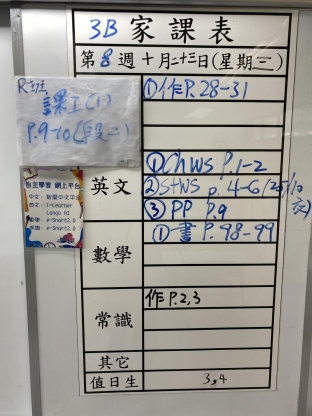 3B 家課表
第 8 週 十月二十三日(星期三)
R班
課工(1)
P.9-10(段二)
①作P.28-31
自主學習 網上平台
中文:智愛中文平台
英文:I-Learner
Lango AI
數學:e-Smart3.0
常識:e-Smart3.0
英文
①Ch WS P.1-2
②S+WS p.4-6(25/10交)
③PP P.9
數學
①書 P.98-99
常識
作P.2,3
其它
值日生
3,4